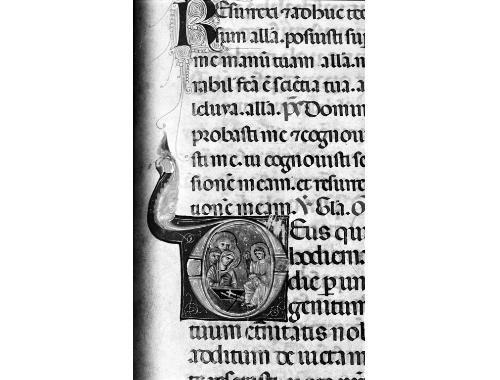 Resurrexi ⁊ adhuc tec
sum alla. posuisti sup
me manum tuam alla. m
rabil' fca ē scientia tua. a
leluya. alla. p̄s Domin
probasti me ⁊ cognoui
sti me. tu cognouisti se
sionē meam. et resure
tionē meam. ℣ Gla. O
Deus qui
hodiema
die p un
genitum
tuum etnitatis nob
aditum de uicta m